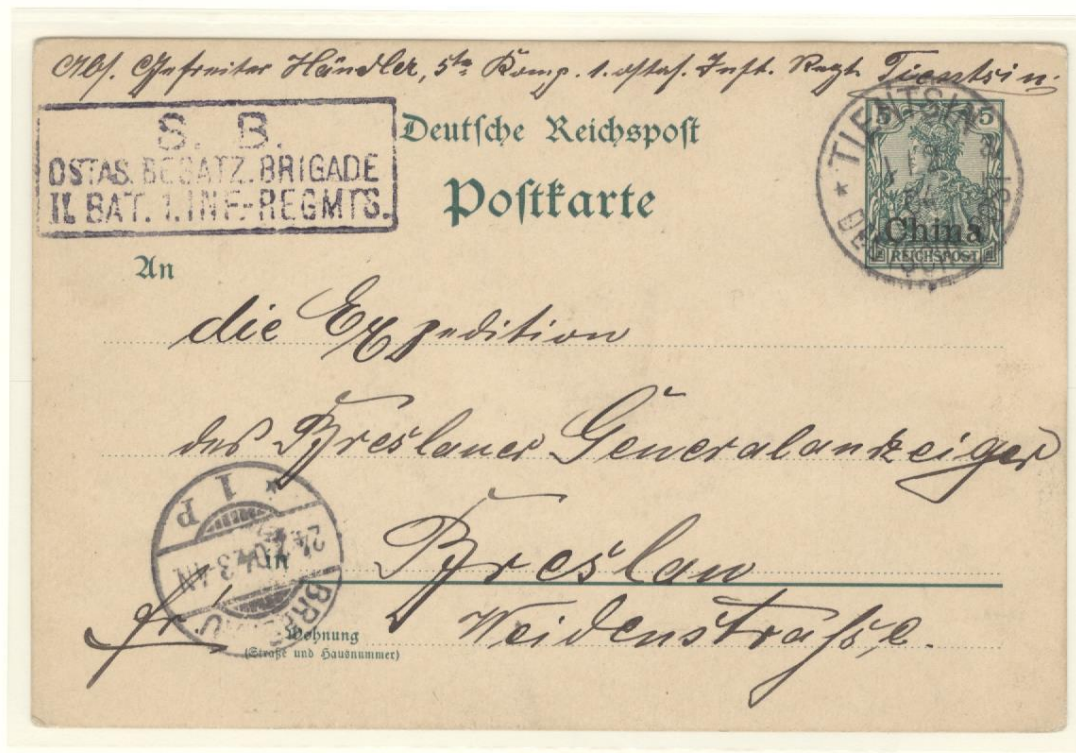 Abs. Gefreiter Händler, 5te Komp. 1. ostas. Inft. Regt. Tientsin.
S. B.
OSTAS. BESATZ. BRIGADE
II. BAT. 1. INF.-REGMTS.
Deutsche Reichspost
Postkarte
5 5
China
REICHSPOST
TIENTSIN
DEUTSCHE POST
An
die Expedition
des Breslauer Generalanzeiger
in Breslau
Weidenstraße.
Wohnung
(Straße und Hausnummer)
BRESLAU
1 P
04.3-4N